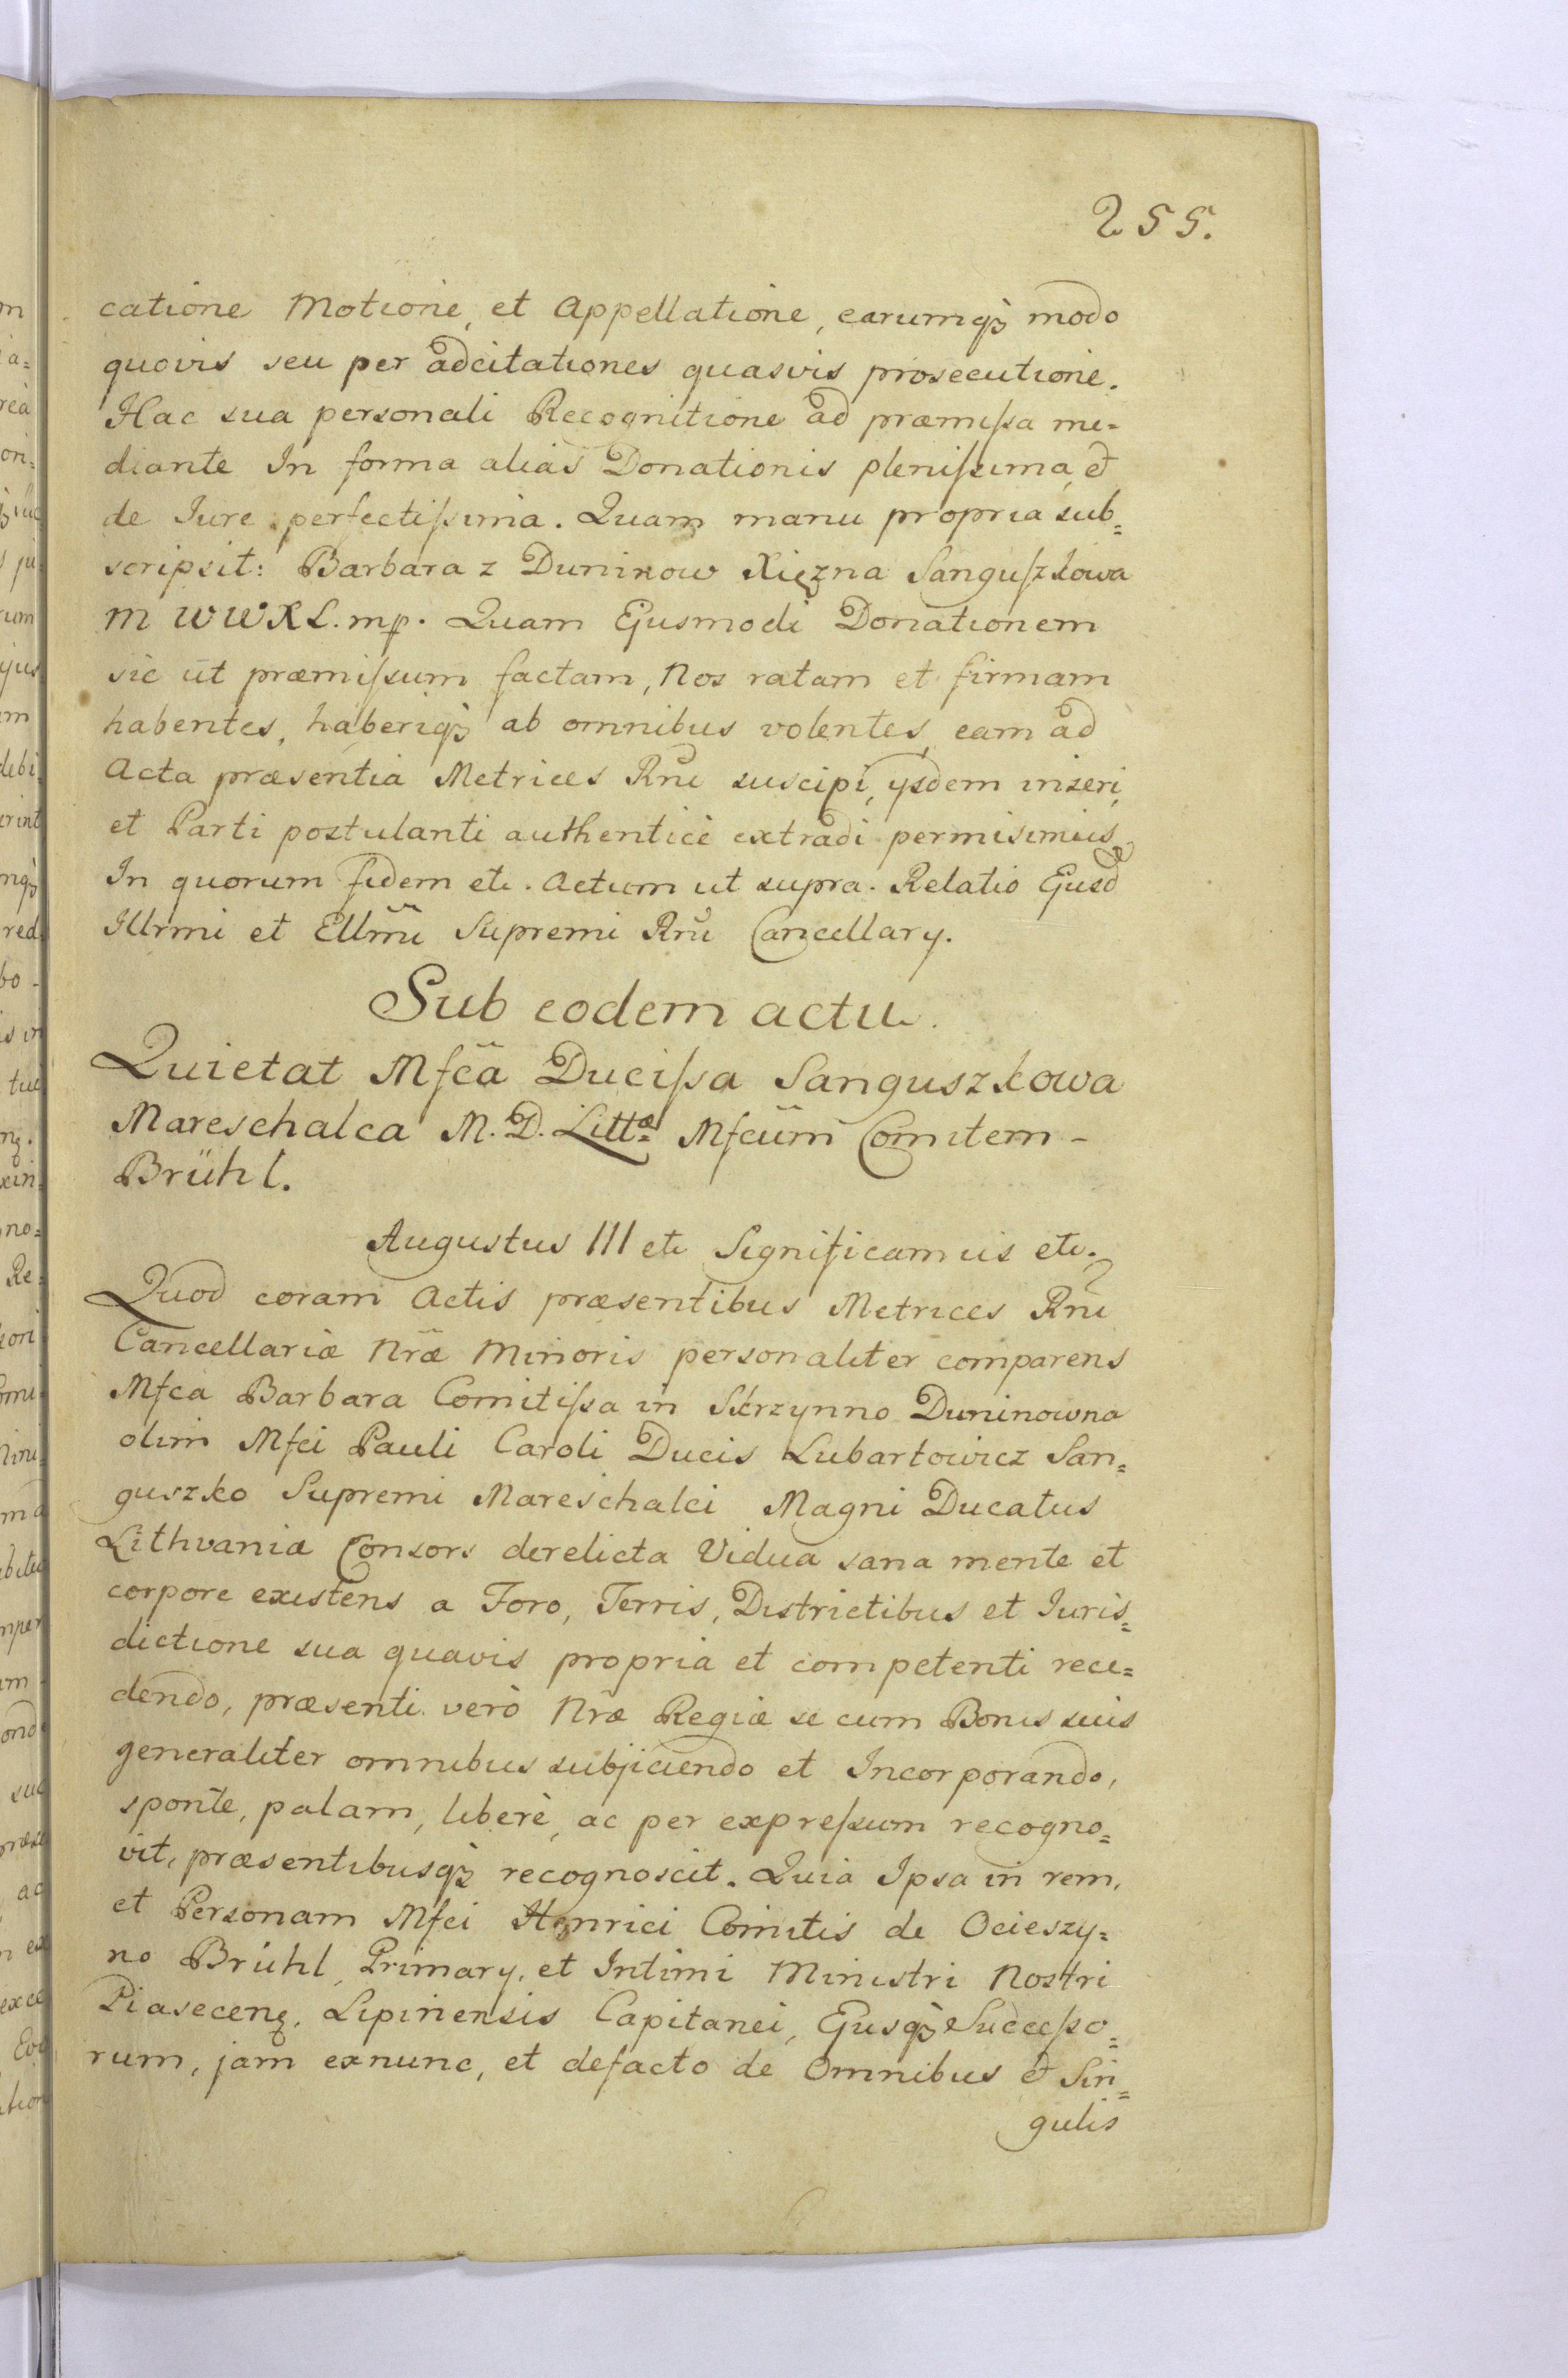 255.
catione Motione, et Appellatione, earumqꝫ modo
quovis seu per adcitationes quasvis prosecutione.
Hac sua personali Recognitione ad præmiſsa me=
diante In forma alias Donationis pleniſsima, et
de Iure perfectiſsima. Quam manu propria sub=
scripsit: Barbara z Duninow Xięzna Sanguſzkowa
M W W X L. mp. Quam Ejusmodi Donationem
sic ut præmiſsum factam, Nos ratam et firmam
habentes, haberiqꝫ ab omnibus volentes, eam ad
Acta præsentia Metrices Rñi suscipi, ysdem inseri,
et Parti postulanti authenticè extradi permisimus.
In quorum fidem etc. Actum ut supra. Relatio Ejusd
Illrmi et Ellm̃i Supremi Rñi Cancellary.
Sub eodem actu.
Quietat Mfca Duciſsa Sanguszkowa
Mareschalca M. D. Littæ Mfcum Comitem -
Brühl.
Augustus III etc Significamus etc.
Quod coram Actis præsentibus Metrices Rñi
Cancellariæ Nræ Minoris personaliter comparens
Mfca Barbara Comitiſsa in Skrzynno Duninowna
olim Mfci Pauli Caroli Ducis Lubartowicz San=
guszko Supremi Mareschalci Magni Ducatus
Lithvaniæ Consors derelicta Vidua sana mente et
corpore existens a Foro, Terris, Districtibus et Iuris=
dictione sua quavis propria et competenti rece=
dendo, præsenti verò Nræ Regiæ se cum Bonis suis
generaliter omnibus subjiciendo et Incorporando,
sponte, palam, liberè, ac per expreſsum recogno=
vit, præsentibusqꝫ recognoscit. Quia Ipsa in rem,
et Personam Mfci Henrici Comitis de Ocieszy=
no Brühl, Primary, et Intimi Ministri Nostri
Piasecenꝫ, Lipinensis Capitanei, Ejusqꝫ Succeſso=
rum, jam exnunc, et defacto de Omnibus et Sin=
gulis